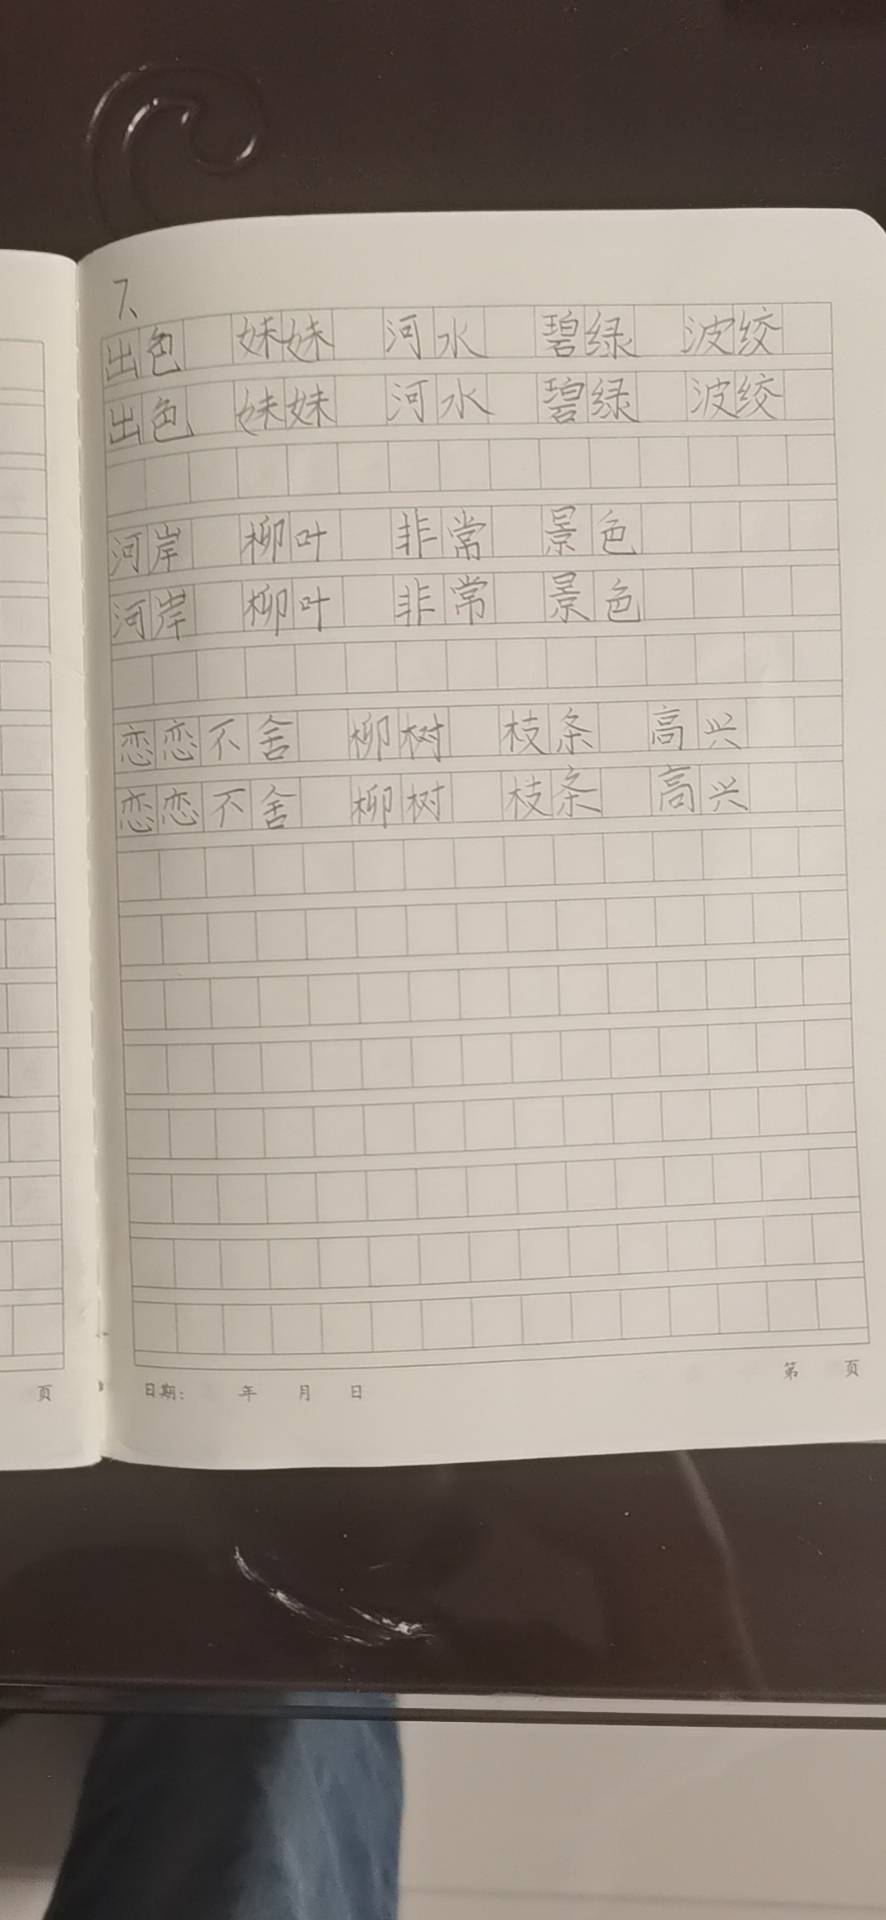 7、
出色 妹妹 河水 碧绿 波绞
出色 妹妹 河水 碧绿 波绞
河岸 柳叶 非常 景色
河岸 柳叶 非常 景色
恋恋不舍 柳树 枝条 高兴
恋恋不舍 柳树 枝条 高兴
页
日期: 年 月 日
第 页